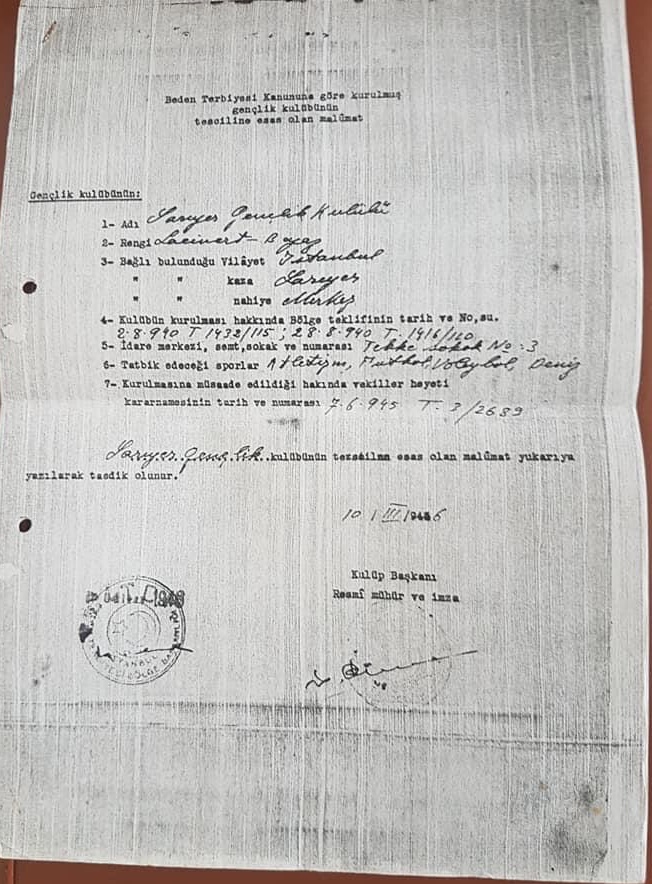 Beden Terbiyesi Kanununa göre kurulmuş
gençlik kulübünün
tesciline esas olan malûmat
Gençlik kulübünün:
1- Adı Sarıyer Gençlik Kulübü
2- Rengi Lacivert - Beyaz
3- Bağlı bulunduğu Vilâyet İstanbul
" " kaza Sarıyer
" " nahiye Merkez
4- Kulübün kurulması hakkında Bölge teklifinin tarih ve No,su.
2.8.940 T 1432/115 ; 28.8.940 T. 1416/120
5- İdare merkezi, semt,sokak ve numarası Tekke sokak No: 3
6- Tatbik edeceği sporlar Atletizm, Futbol, Voleybol, Deniz
7- Kurulmasına müsaade edildiği hakında vekiller heyeti
kararnamesinin tarih ve numarası 7.6.945 T. 3/2689
Sarıyer Gençlik kulübünün tezsailma esas olan malûmat yukarıya
yazılarak tasdik olunur.
10 / III / 1946
Kulüp Başkanı
Resmî mühür ve imza
1946
İSTANBUL